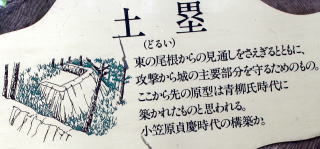 土塁
(どるい)
東の尾根からの見通しをさえぎるとともに、
攻撃から城の主要部分を守るためのもの。
ここから先の原型は青柳氏時代に
築かれたものと思われる。
小笠原貞慶時代の構築か。